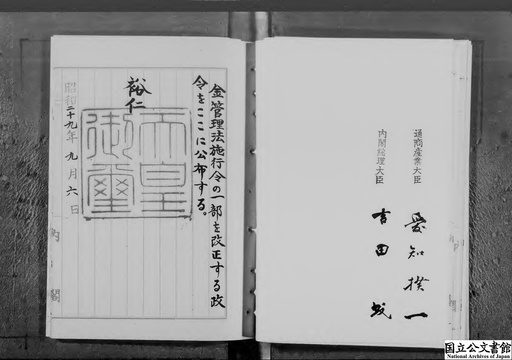 金管理法施行令の一部を改正する政
令をここに公布する。
裕仁
天皇
御璽
昭和二十九年九月六日
内閣
通商産業大臣
愛知揆一
内閣総理大臣
吉田茂
国立公文書館
National Archives of Japan